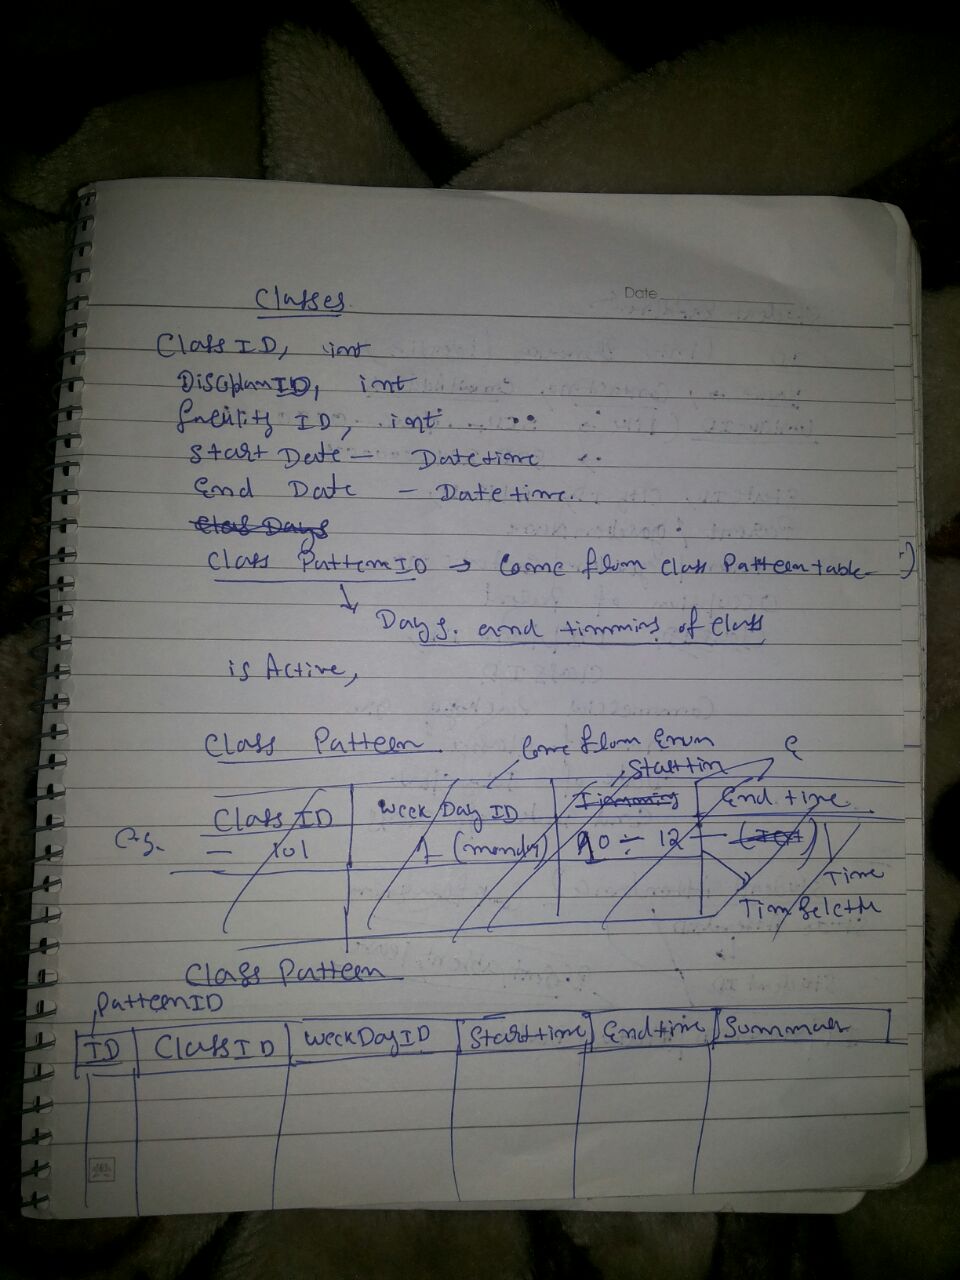 Date
Classes
Class ID, int
DiscplanID, int
facility ID, int
Start Date - Datetime
End Date - Datetime.
Class Days
Class PatternID → Come from Class Patteen table
Days. and timming of Class
is Active,
Class Patteen
Come from Enum
Starttim
Class ID
Week Day ID
Timming
End time
e.g.
101
1 (monday)
10 - 12 -
Time
Class Patteen
PatteenID
ID ClassID WeekDayID Starttime Endtime